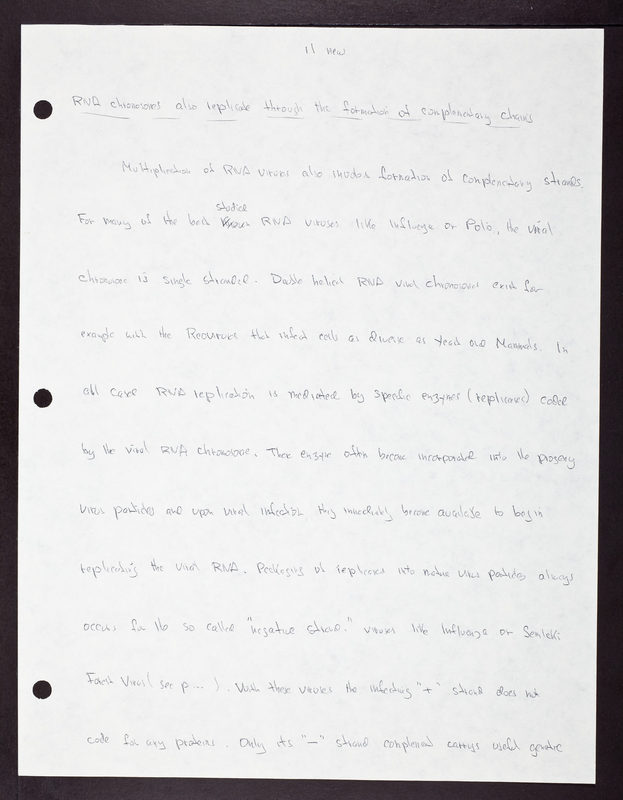 11 new
RNA chromosomes also replicate through the formation of complementary chains
Multiplication of RNA viruses also involves formation of complementary strands.
studied
For many of the best known RNA viruses like Influenza or Polio, the viral
chromosome is single stranded. Double helical RNA viral chromosomes exist for
example with the Reoviruses that infect cells as diverse as Yeast and Mammals. In
all cases RNA replication is mediated by specific enzymes (replicases) coded
by the viral RNA chromosome. These enzyme often become incorporated into the progeny
virus particles and upon viral infection they immediately become available to begin
replicating the viral RNA. Packaging of replicases into mature virus particles always
occurs for the so called "negative strand." viruses like Influenza or Semliki
Forest Virus (see p...). With these viruses the infecting "+" strand does not
code for any proteins. Only its "–" strand complement carrys useful genetic